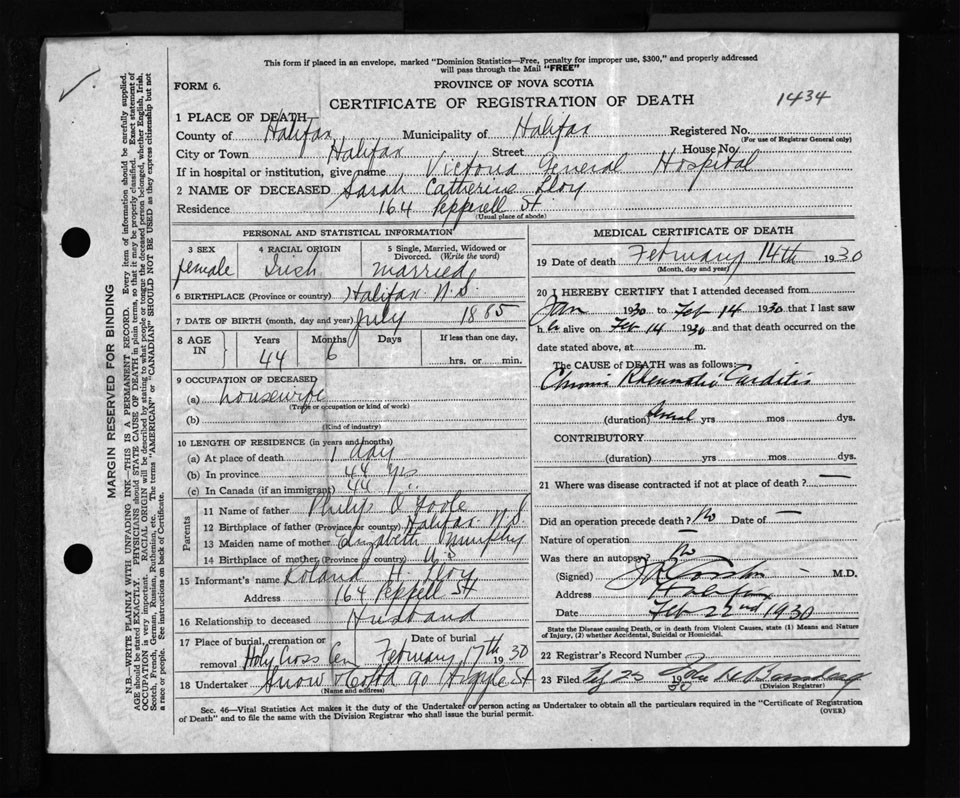 This form if placed in an envelope, marked "Dominion Statistics—Free, penalty for improper use, $300," and properly addressed
will pass through the Mail "FREE"
FORM 6.
PROVINCE OF NOVA SCOTIA
CERTIFICATE OF REGISTRATION OF DEATH
1434
1 PLACE OF DEATH
County of Halifax Municipality of Halifax Registered No.
(For use of Registrar General only)
City or Town Halifax Street House No.
If in hospital or institution, give name Victoria General Hospital
2 NAME OF DECEASED Sarah Catherine Lloy
Residence 164 Pepperell St
(Usual place of abode)
PERSONAL AND STATISTICAL INFORMATION
3 SEX female
4 RACIAL ORIGIN Irish
5 Single, Married, Widowed or Divorced. (Write the word) married
6 BIRTHPLACE (Province or country) Halifax N.S.
7 DATE OF BIRTH (month, day and year) July 1885
8 AGE IN Years Months Days If less than one day,
44 6 hrs. or min.
9 OCCUPATION OF DECEASED
(a) housewife
(Trade or occupation or kind of work)
(b)
(Kind of industry)
10 LENGTH OF RESIDENCE (in years and months)
(a) At place of death 1 day
(b) In province 44 yrs
(c) In Canada (if an immigrant) 44 "
Parents
11 Name of father Philip O'Toole
12 Birthplace of father (Province or country) Halifax N.S.
13 Maiden name of mother Elizabeth Murphy
14 Birthplace of mother (Province or country) U S
15 Informant's name Roland H Lloy
Address 164 Peppell St
16 Relationship to deceased Husband
17 Place of burial, cremation or removal Holy Cross Cem Date of burial February 17th 1930
18 Undertaker Snow & Co Ltd 90 Argyle St
(Name and address)
MEDICAL CERTIFICATE OF DEATH
19 Date of death February 14th 1930
(Month, day and year)
20 I HEREBY CERTIFY that I attended deceased from
Jan 1930 to Feb 14 1930 that I last saw
h er alive on Feb 14 1930 and that death occurred on the
date stated above, at m.
The CAUSE OF DEATH was as follows:
Chronic Rheumatic Carditis
(duration) Several yrs mos dys.
CONTRIBUTORY
(duration) yrs mos dys.
21 Where was disease contracted if not at place of death? —
Did an operation precede death? No Date of —
Nature of operation —
Was there an autopsy? No
(Signed) M.D.
Address Halifax
Date Feb 22nd 1930
State the Disease causing Death, or in death from Violent Causes, state (1) Means and Nature
of Injury, (2) whether Accidental, Suicidal or Homicidal.
22 Registrar's Record Number
23 Filed 25 1930 John
(Division Registrar)
Sec. 46—Vital Statistics Act makes it the duty of the Undertaker or person acting as Undertaker to obtain all the particulars required in the "Certificate of Registration
of Death" and to file the same with the Division Registrar who shall issue the burial permit.
(OVER)
MARGIN RESERVED FOR BINDING
N.B.—WRITE PLAINLY WITH UNFADING INK—THIS IS A PERMANENT RECORD. Every item of information should be carefully supplied.
AGE should be stated EXACTLY. PHYSICIANS should STATE CAUSE OF DEATH in plain terms, so that it may be properly classified. Exact statement of
OCCUPATION is very important. RACIAL ORIGIN will be described by stating to what people or tongue the deceased person belonged, whether English, Irish,
Scotch, French, German, Russian, Ruthenian, etc. The terms "AMERICAN" or "CANADIAN" SHOULD NOT BE USED as they express citizenship but not
a race or people. See instructions on back of Certificate.